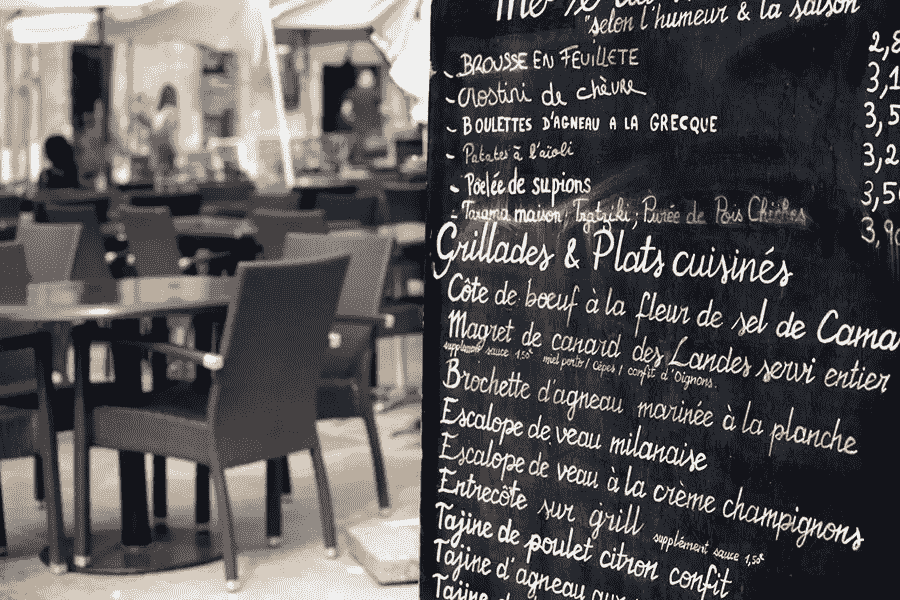 "selon l'humeur & la saison
- BROUSSE EN FEUILLETE
- Crostini de chèvre
- BOULETTES D'AGNEAU A LA GRECQUE
- Patates à l'aïoli
- Poêlée de supions
- Tarama maison; Tzatziki; Purée de Pois Chiches
2,8
3,1
3,5
3,2
3,50
3,90
Grillades & Plats cuisinés
Côte de boeuf à la fleur de sel de Cama
Magret de canard des Landes servi entier
supplément sauce 1,50 miel porto / cèpes / confit d'Oignons.
Brochette d'agneau marinée à la planche
Escalope de veau milanaise
Escalope de veau à la crème champignons
Entrecôte sur grill supplément sauce 1,50
Tajine de poulet citron confit
Tajine d'agneau aux
Tajine